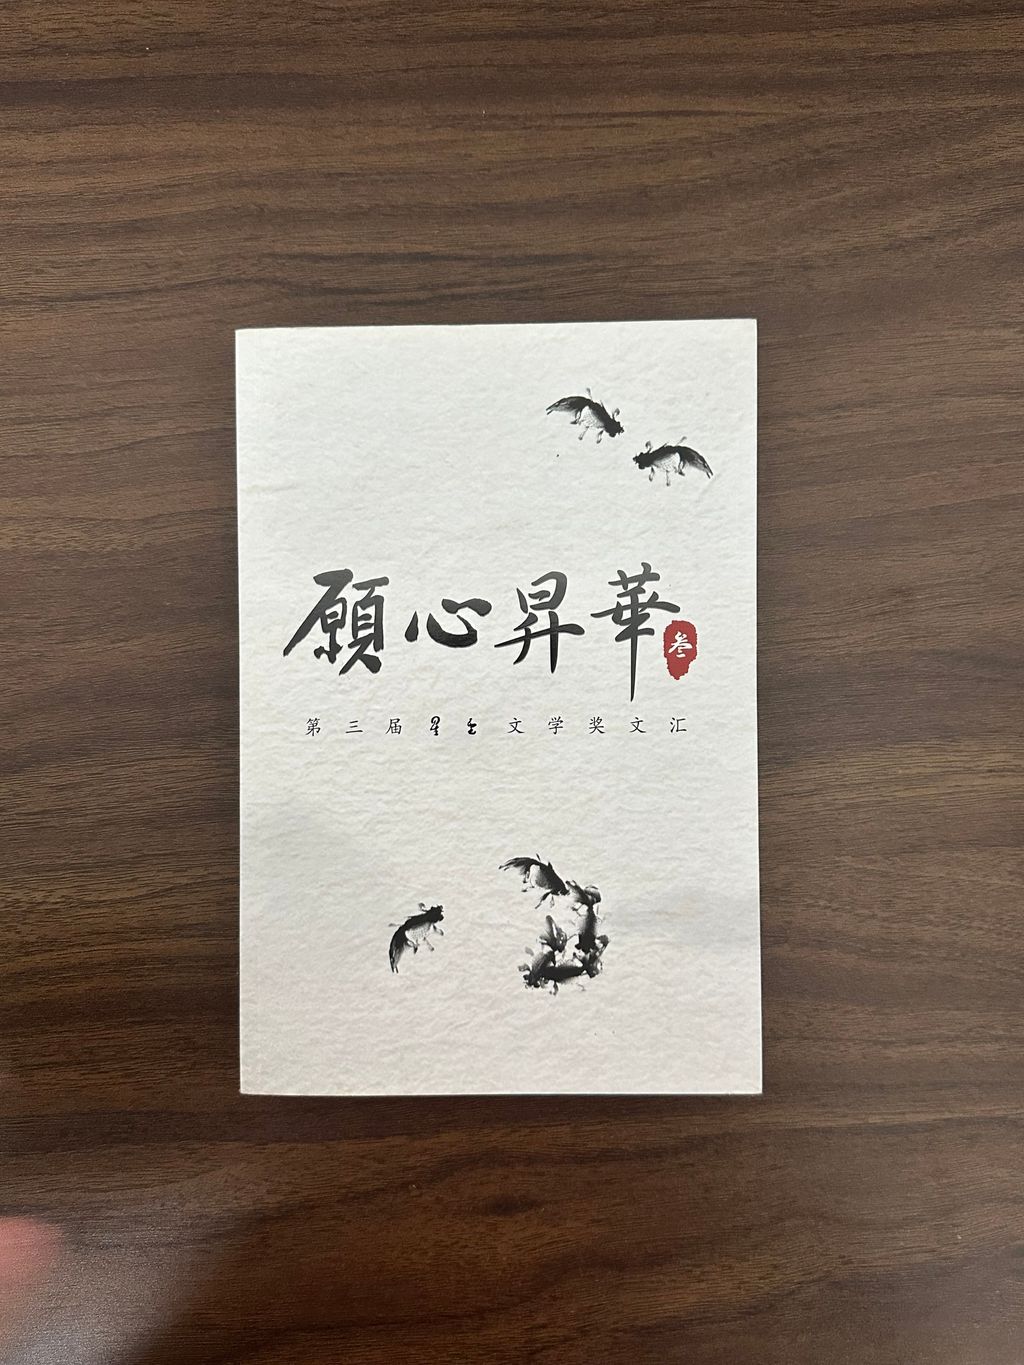 願心昇華
叁
第三届星全文学奖文汇